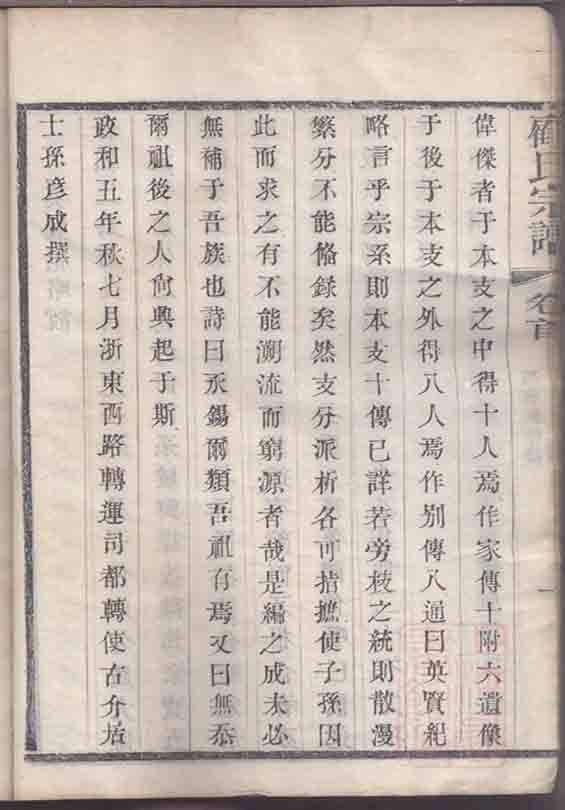 顧氏宗譜 卷首 一
偉傑者于本支之中得十人焉作家傳十附六遺像
于後于本支之外得八人焉作别傳八通曰英賢紀
略言乎宗系則本支十傳已詳若旁枝之統則散漫
繁分不能俻録矣然支分派析各可指摭使子孫因
此而求之有不能溯流而窮源者哉是編之成未必
無補于吾族也詩曰永錫爾類吾祖有焉又曰無忝
爾祖後之人尙興起于斯
政和五年秋七月浙東西路轉運司都轉使古介居
士孫彦成撰